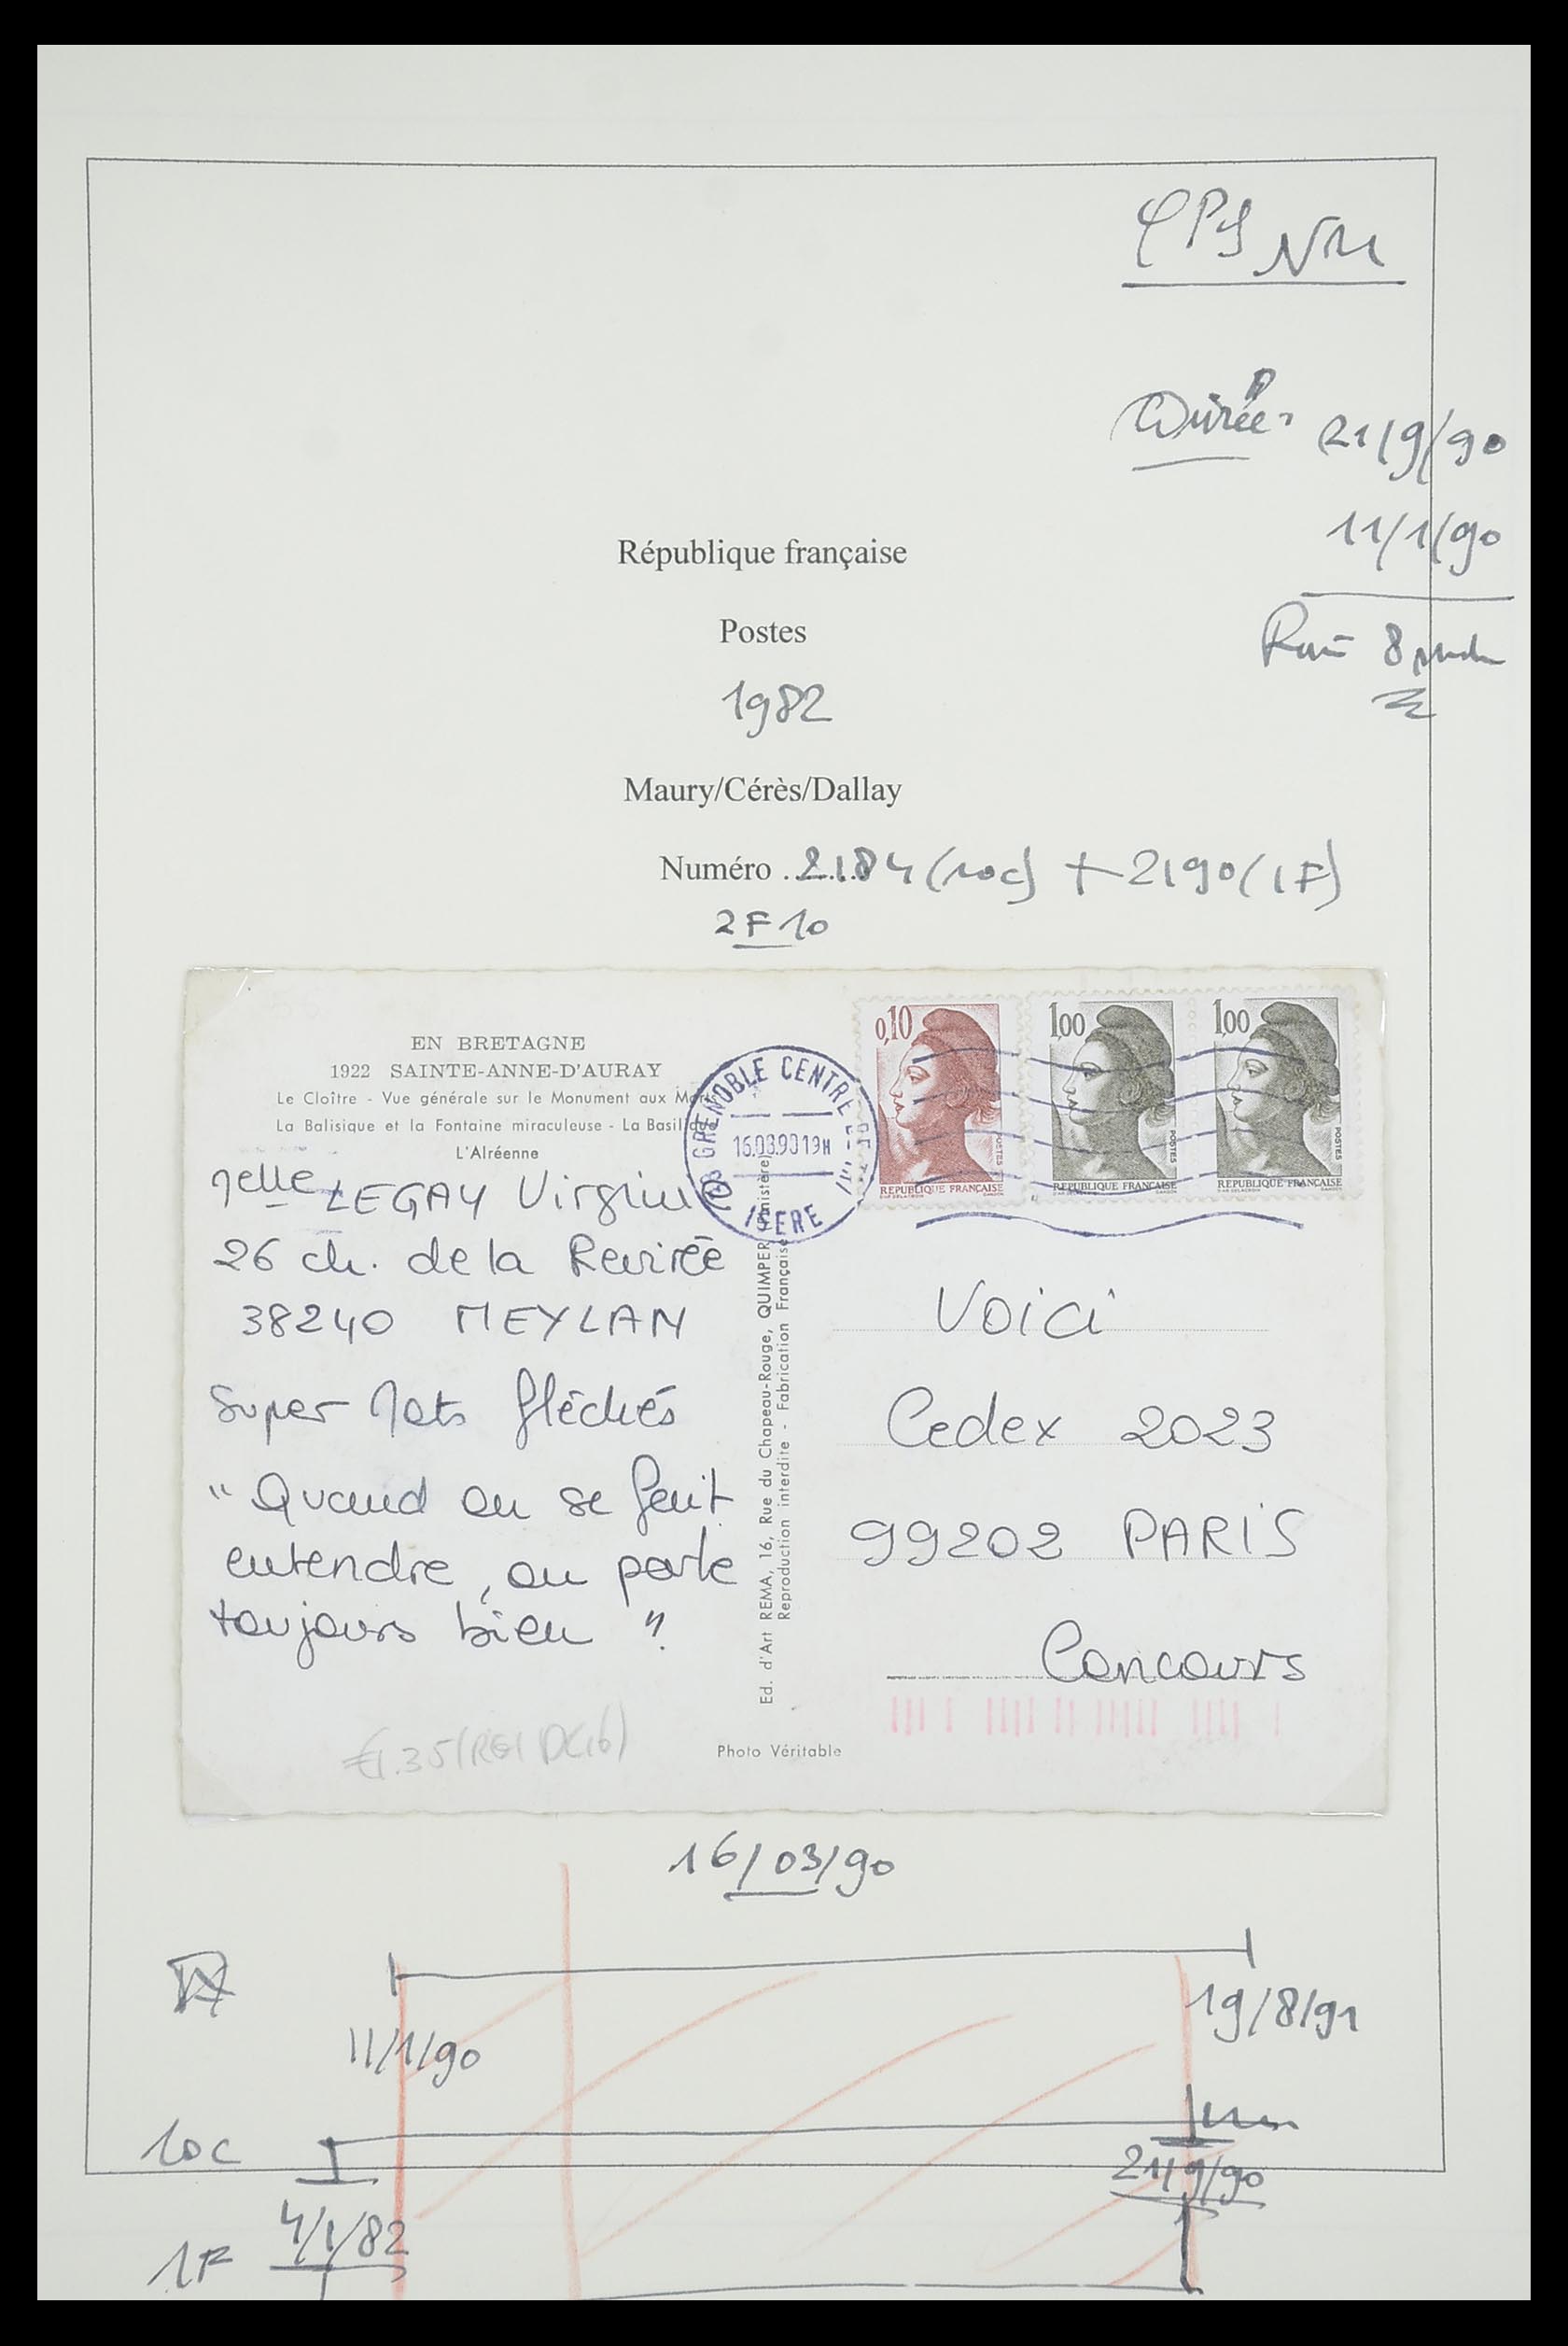 NM
Durée 21/9/90
11/1/90
8
République française
Postes
1982
Maury/Cérès/Dallay
Numéro ........ 2184 (10c) + 2190 (1F)
2F10
EN BRETAGNE
1922 SAINTE-ANNE-D'AURAY
Le Cloître - Vue générale sur le Monument aux Morts
La Balisique et la Fontaine miraculeuse - La Basilique
L'Alréenne
0,10
1,00
1,00
POSTES
POSTES
POSTES
REPUBLIQUE FRANÇAISE
REPUBLIQUE FRANÇAISE
REPUBLIQUE FRANÇAISE
38 GRENOBLE CENTRE
ISERE
Melle LEGAY Virginie
26 ch. de la Revirée
38240 MEYLAN
Super Mots fléchés
" Quand on se fait
entendre, on parle
toujours bien "
Ed. d'Art REMA, 16, Rue du Chapeau-Rouge, QUIMPER (Finistère)
Reproduction interdite - Fabrication Française
Photo Véritable
Voici
Cedex 2023
99202 PARIS
Concours
16/03/90
11/1/90
19/8/91
10c
21/9/90
4/1/82
1F